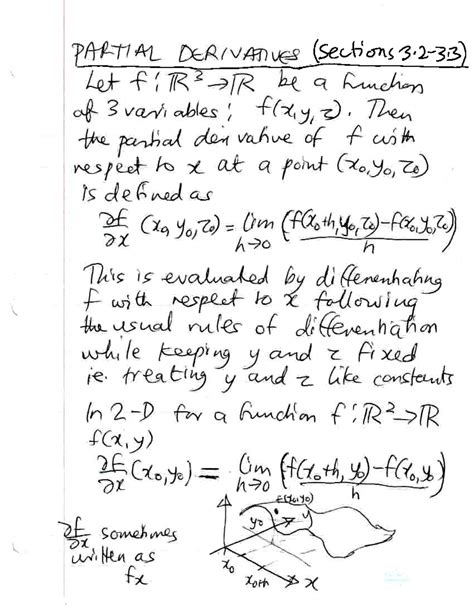 PARTIAL DERIVATIVES (Sections 3.2-3.3)
Let f: ℝ³→ℝ be a function
of 3 variables; f(x,y,z). Then
the partial derivative of f with
respect to x at a point (x₀,y₀,z₀)
is defined as
∂f/∂x (x₀,y₀,z₀) = lim h→0 (f(x₀+h,y₀,z₀)-f(x₀,y₀,z₀))/h
This is evaluated by differentiating
f with respect to x following
the usual rules of differentiation
while keeping y and z fixed
ie. treating y and z like constants
In 2-D for a function f: ℝ²→ℝ
f(x,y)
∂f/∂x (x₀,y₀) = lim h→0 (f(x₀+h, y₀)-f(x₀,y₀))/h
f(x₀,y₀)
y₀ y
∂f/∂x sometimes
written as
fx
x₀ x₀+h x